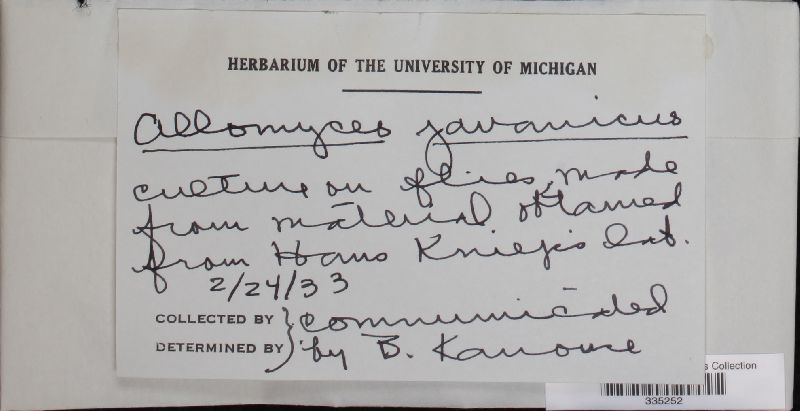 HERBARIUM OF THE UNIVERSITY OF MICHIGAN
Allomyces javanicus
culture on flies, made
from material obtained
from Hans Kniep's Lab.
2/24/33
COLLECTED BY } communicated
DETERMINED BY } by B. Kanouse
s Collection
335252